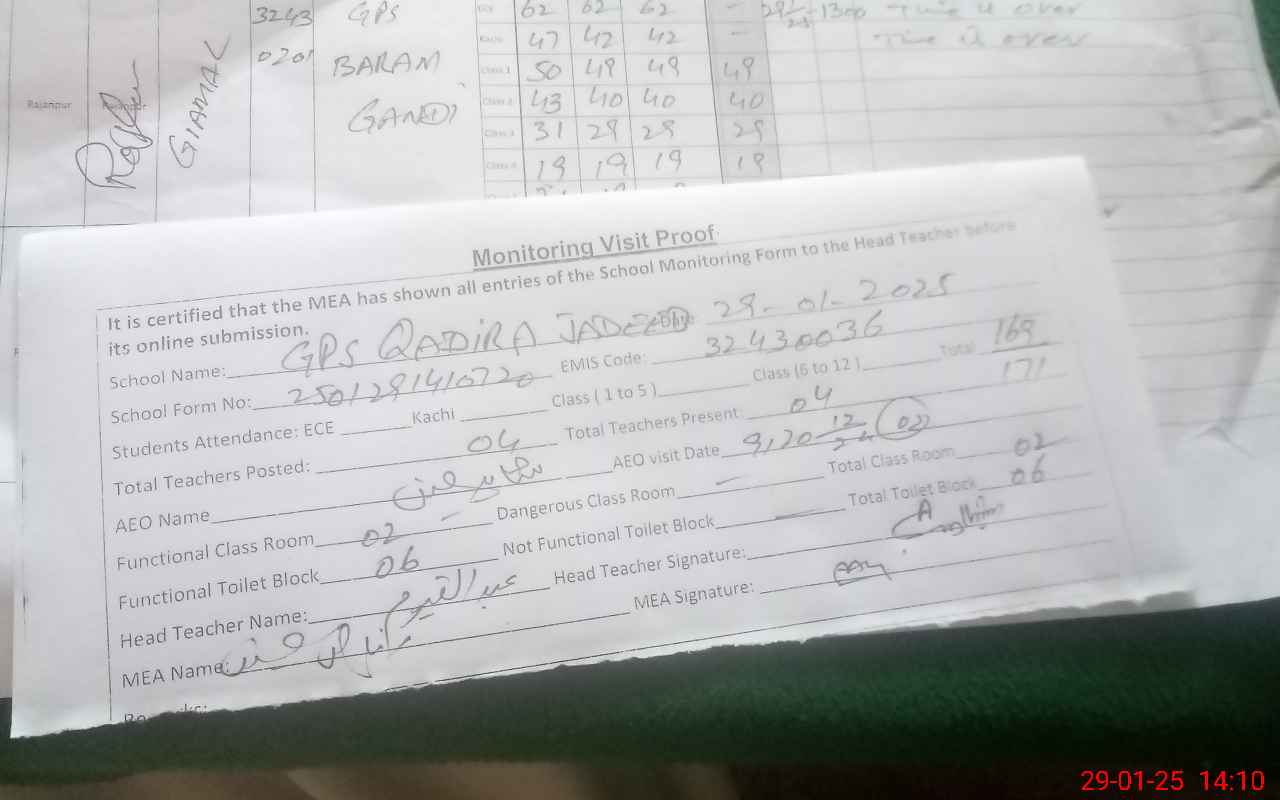 3243 GPS 62 62 62 - 1300 Time is over
Kachi 47 42 42 - Time is over
0201 BARAM Class 1 50 49 49 49
Rajanpur GIAMAL Class 2 43 40 40 40
Class 3 31 29 29 29
Class 4 19 19 19 19
Monitoring Visit Proof
It is certified that the MEA has shown all entries of the School Monitoring Form to the Head Teacher before
its online submission.
School Name: GPS QADIRA JADEED 29-01-2025
School Form No: EMIS Code: 32430036
Students Attendance: ECE Kachi Class ( 1 to 5 ) Class (6 to 12 ) Total 169
171
Total Teachers Posted: 04 Total Teachers Present: 04
AEO Name AEO visit Date 9,20 12/24 02
Functional Class Room 02 - Dangerous Class Room - Total Class Room 02
Functional Toilet Block 06 Not Functional Toilet Block Total Toilet Block 06
Head Teacher Name: عبدالقیوم Head Teacher Signature:
MEA Name: MEA Signature:
29-01-25 14:10